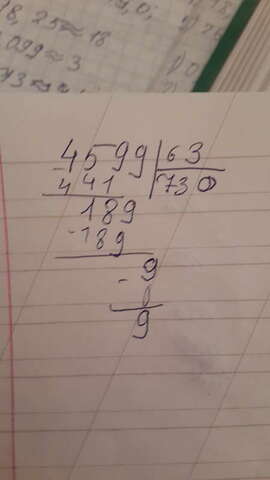 18, 25≈18
099≈3
4599|63
441 |730
189
-189
9
-0
9